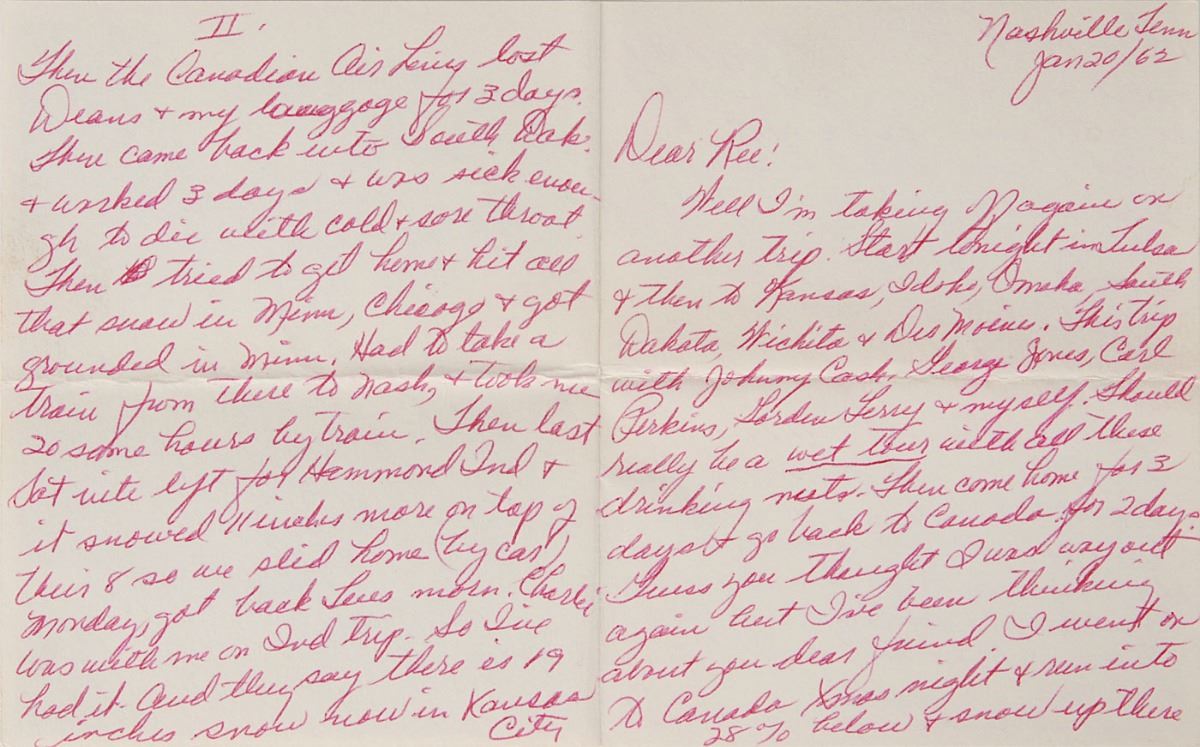 Nashville Tenn
Jan 20/62
Dear Ree!
Well I'm taking off again on
another trip. Start tonight in Tulsa
& then to Kansas, Idoho, Omaha, South
Dakota, Wichita & Des Moines. This trip
with Johnny Cash, George Jones, Carl
Perkins, Gorden Terry & myself. Should
really be a wet tour with all these
drinking nuts. Then come home for 3
days & go back to Canada for 2 days.
Guess you thought I was way out
again but I've been thinking
about you dear friend. I went on
to Canada Xmas night & run into
28% below & snow up there
II.
Then the Canadian Air Lines lost
Deans & my lauggage for 3 days.
Then came back into South Dak.
& worked 3 days & was sick enou-
gh to die with cold & sore throat
Then tried to get home & hit all
that snow in Minn, Chicago & got
grounded in Minn. Had to take a
train from there to Nash, & took me
20 some hours by train. Then last
Sat nite left for Hammond Ind &
it snowed 11 inches more on top of
their 8 so we slid home (by car)
Monday, got back Tues morn. Charlie
was with me on Ind trip. So I've
had it. And they say there is 19
inches snow now in Kansas
City